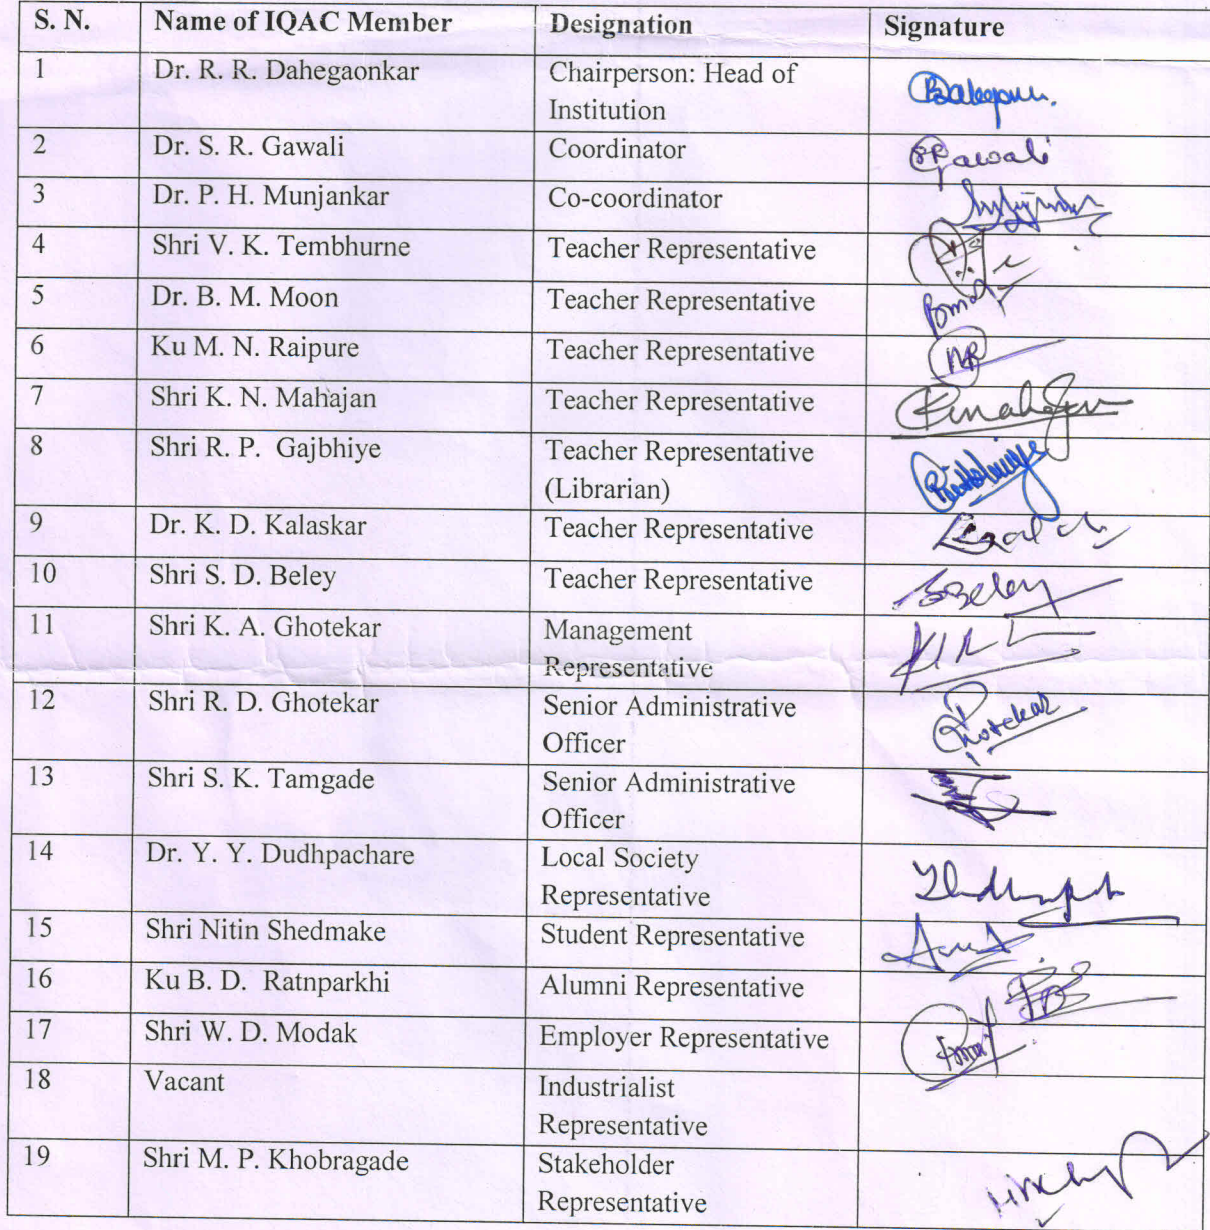 S. N. Name of IQAC Member Designation Signature
1 Dr. R. R. Dahegaonkar Chairperson: Head of
Institution
2 Dr. S. R. Gawali Coordinator SRGawali
3 Dr. P. H. Munjankar Co-coordinator
4 Shri V. K. Tembhurne Teacher Representative
5 Dr. B. M. Moon Teacher Representative
6 Ku M. N. Raipure Teacher Representative
7 Shri K. N. Mahajan Teacher Representative
8 Shri R. P. Gajbhiye Teacher Representative
(Librarian)
9 Dr. K. D. Kalaskar Teacher Representative
10 Shri S. D. Beley Teacher Representative SBeley
11 Shri K. A. Ghotekar Management
Representative
12 Shri R. D. Ghotekar Senior Administrative
Officer
13 Shri S. K. Tamgade Senior Administrative
Officer
14 Dr. Y. Y. Dudhpachare Local Society
Representative
15 Shri Nitin Shedmake Student Representative
16 Ku B. D. Ratnparkhi Alumni Representative
17 Shri W. D. Modak Employer Representative
18 Vacant Industrialist
Representative
19 Shri M. P. Khobragade Stakeholder
Representative